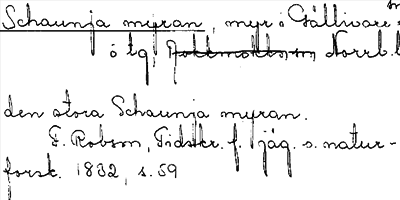 Schaunja myran, myr i Gällivare sn
o tg Jokkmokks sn Norrb. l
den stora Schaunja myran.
F. Robson, Tidskr. f. jäg. o. natur-
forsk. 1832, s. 59